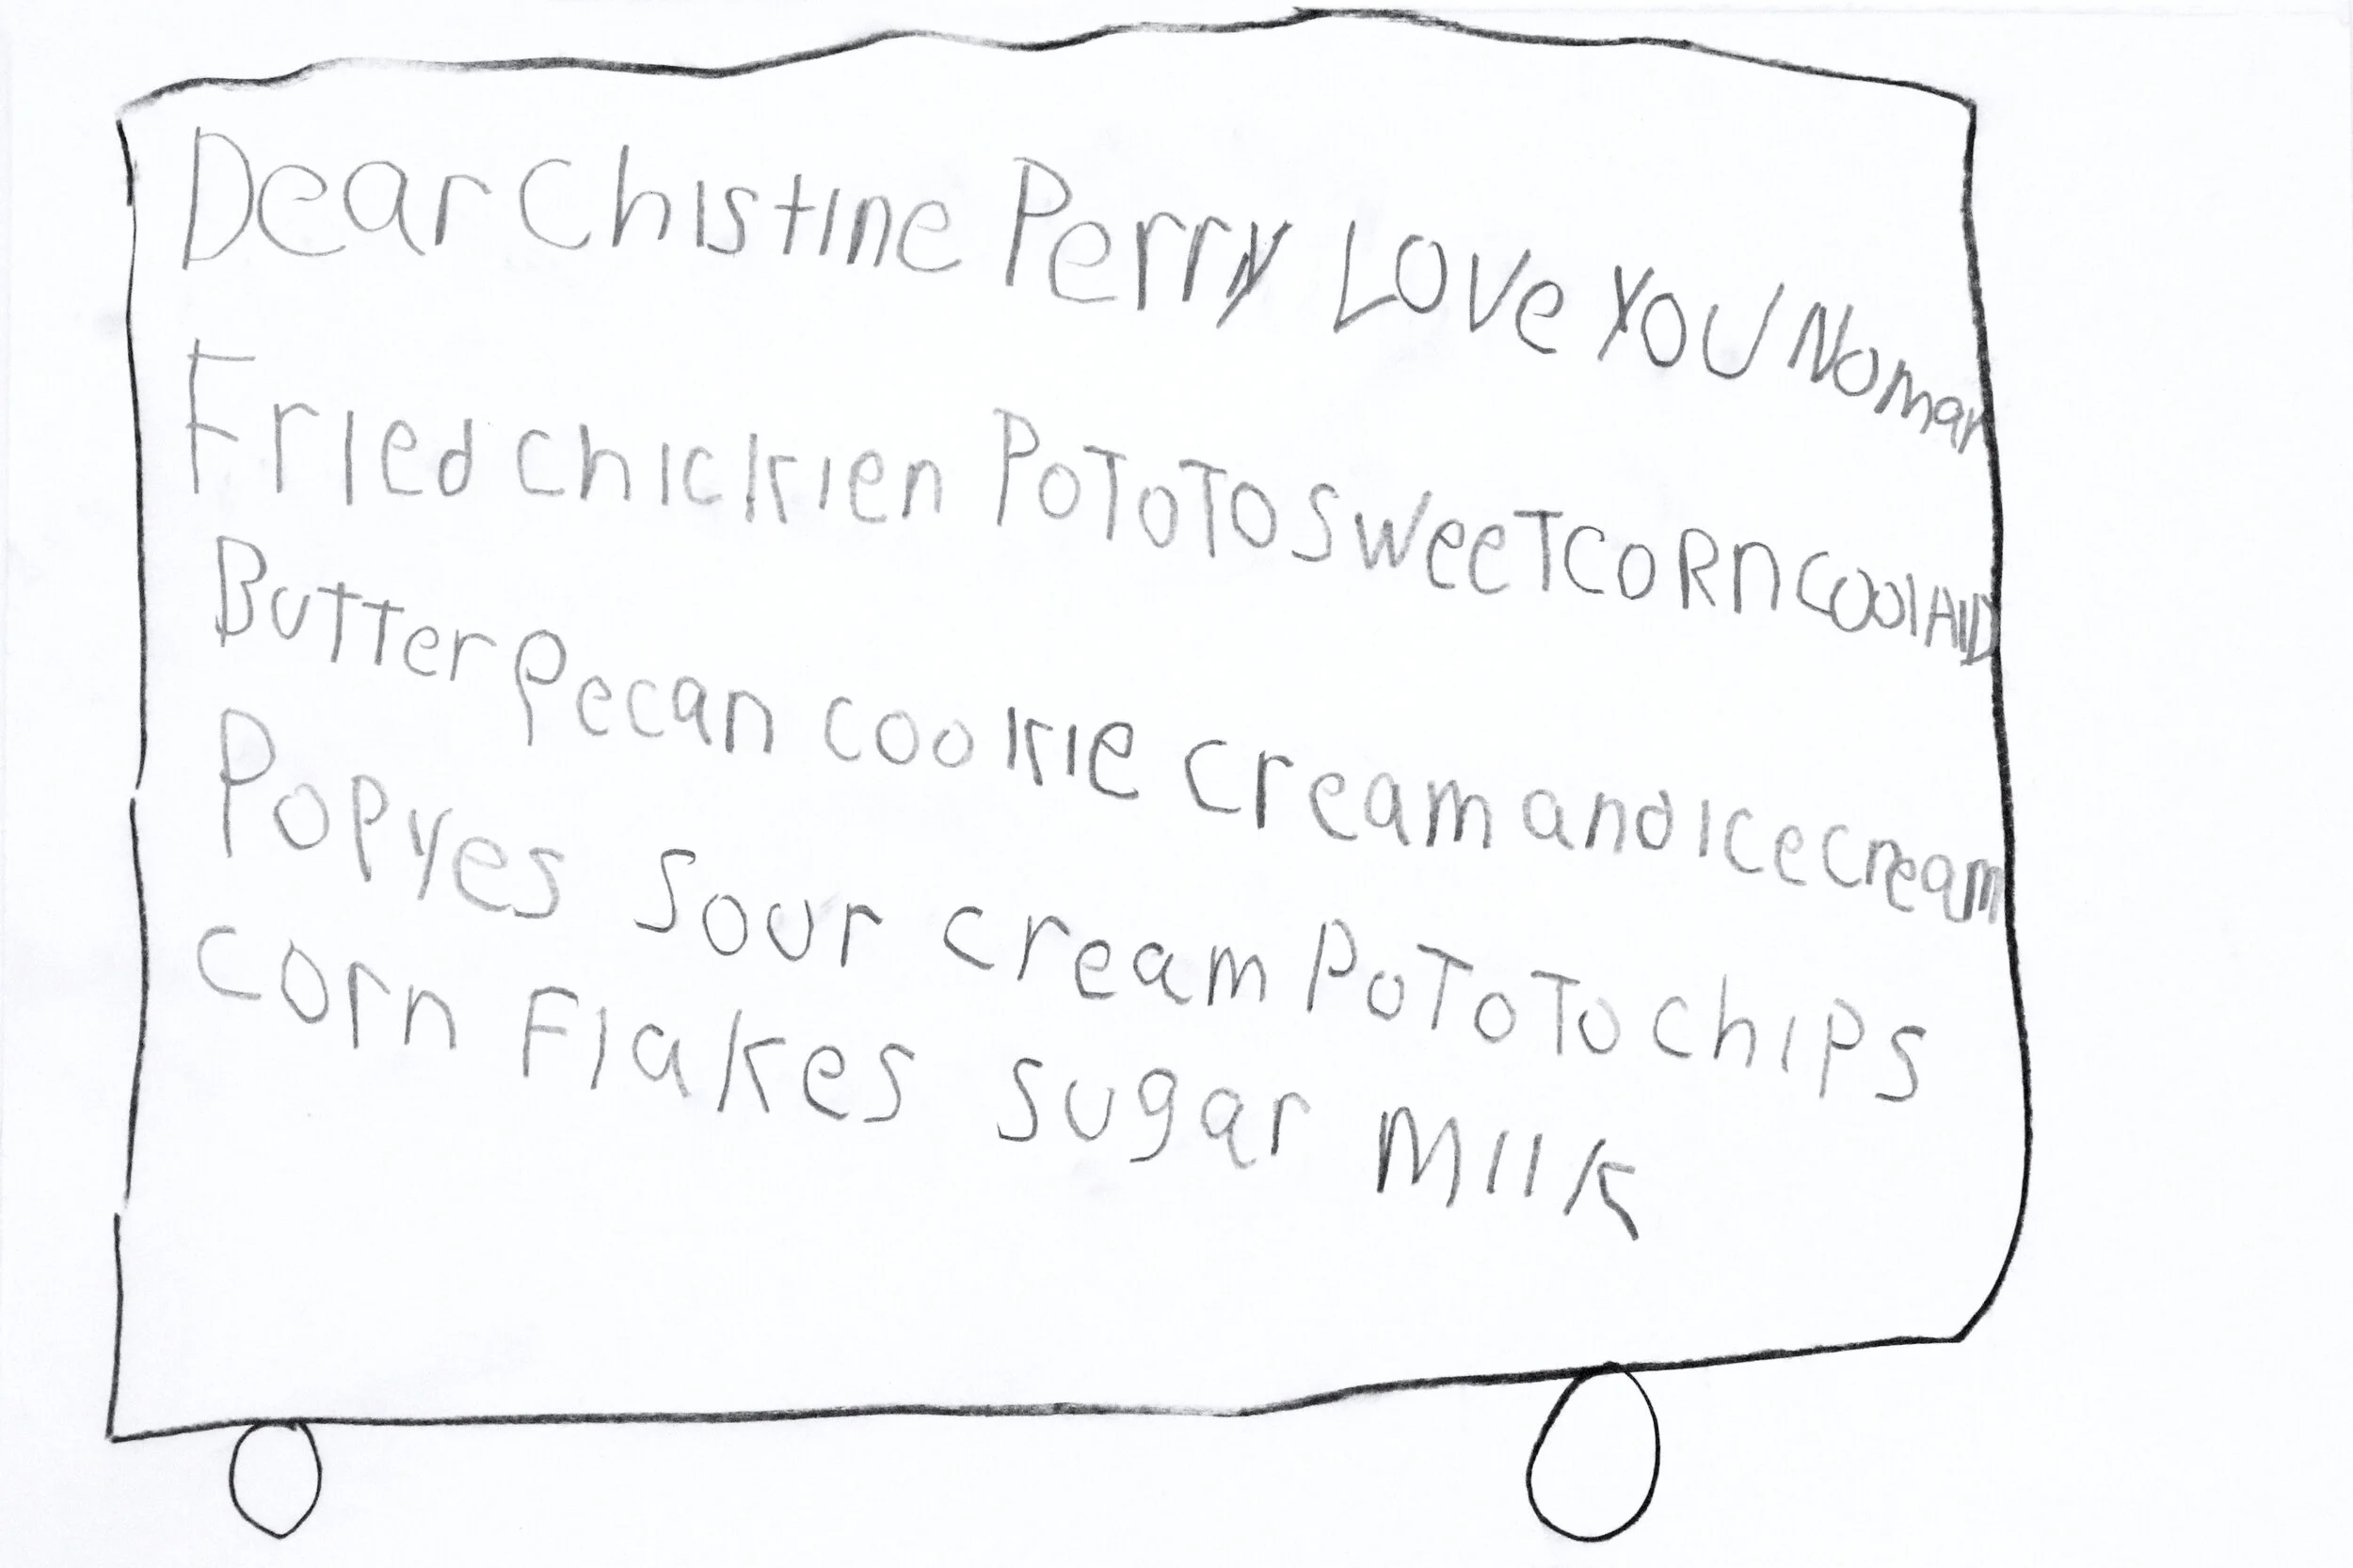 Dear Chistine Perry Love You Noman
Fried chickien Pototo sweet corn coolAID
Butter Pecan cookie cream and ice cream
Popyes sour cream Pototo chips
corn Flakes sugar Milk